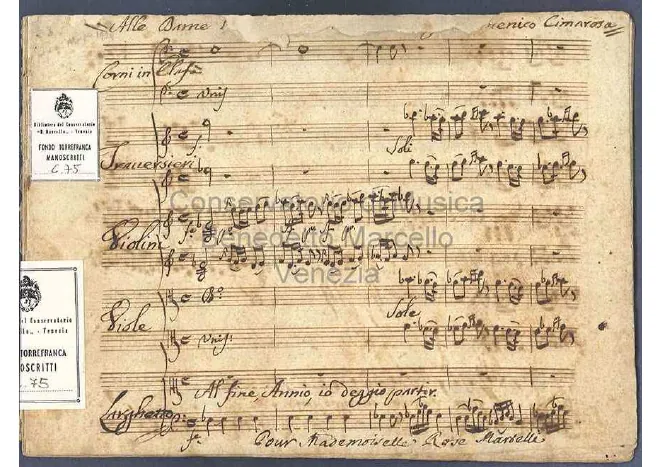 Alle Dame
enico Cimarosa
Corni in Elafà
Unis
Biblioteca del Conservatorio
«B. Marcello» - Venezia
FONDO TORREFRANCA
MANOSCRITTI
C.75
Traversieri
Soli
Conservatorio di Musica
Benedetto Marcello
Venezia
Violini
del Conservatorio
- Venezia
TORREFRANCA
OSCRITTI
.75
Viole
Sole
Unis
Al fine Annio io deggio partir.
Larghetto
Pour Mademoiselle Rose Marselle